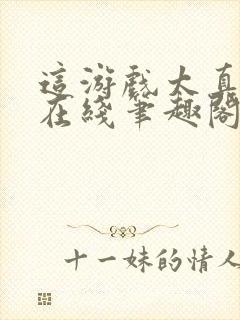 這游戲太真
在綫筆趣閣
十一妹的情人